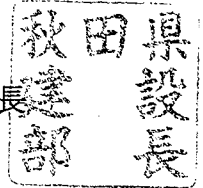 秋田県
建設
部長
長